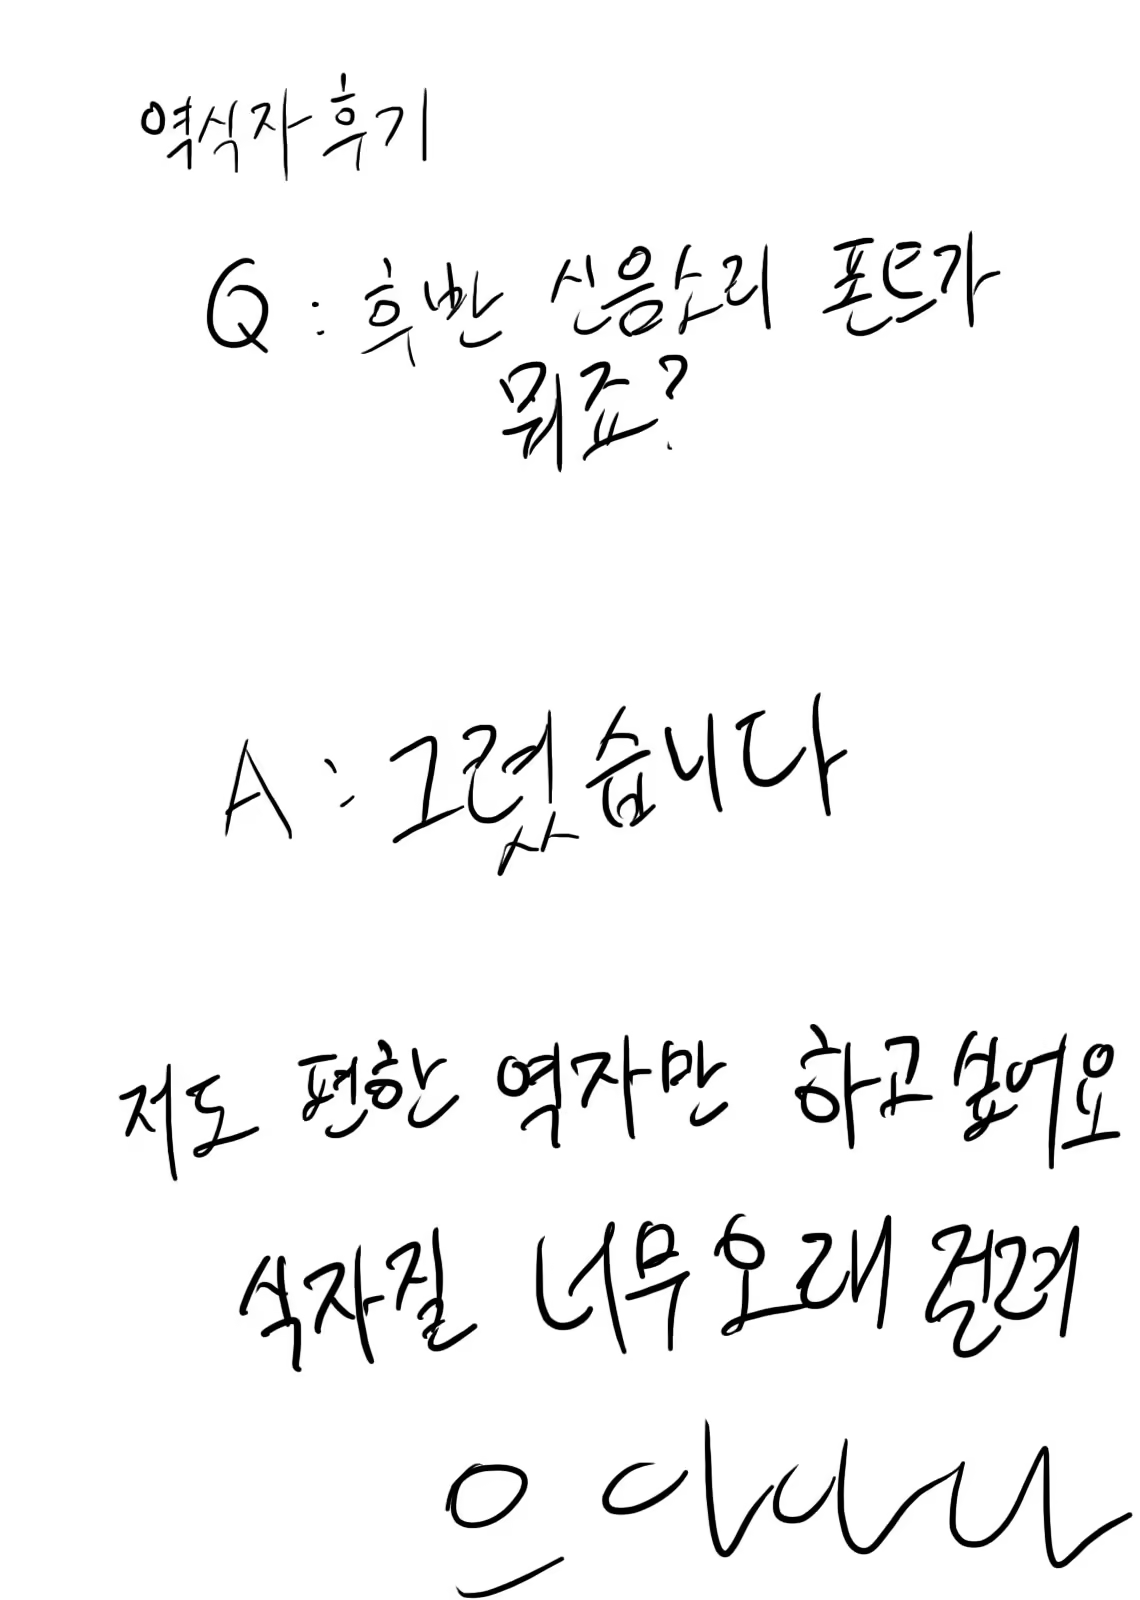 역식자 후기
Q : 후반 신음소리 폰트가
뭐죠?
A : 그렸습니다
저도 편한 역자만 하고싶어요
식자질 너무 오래 걸려
으아아아